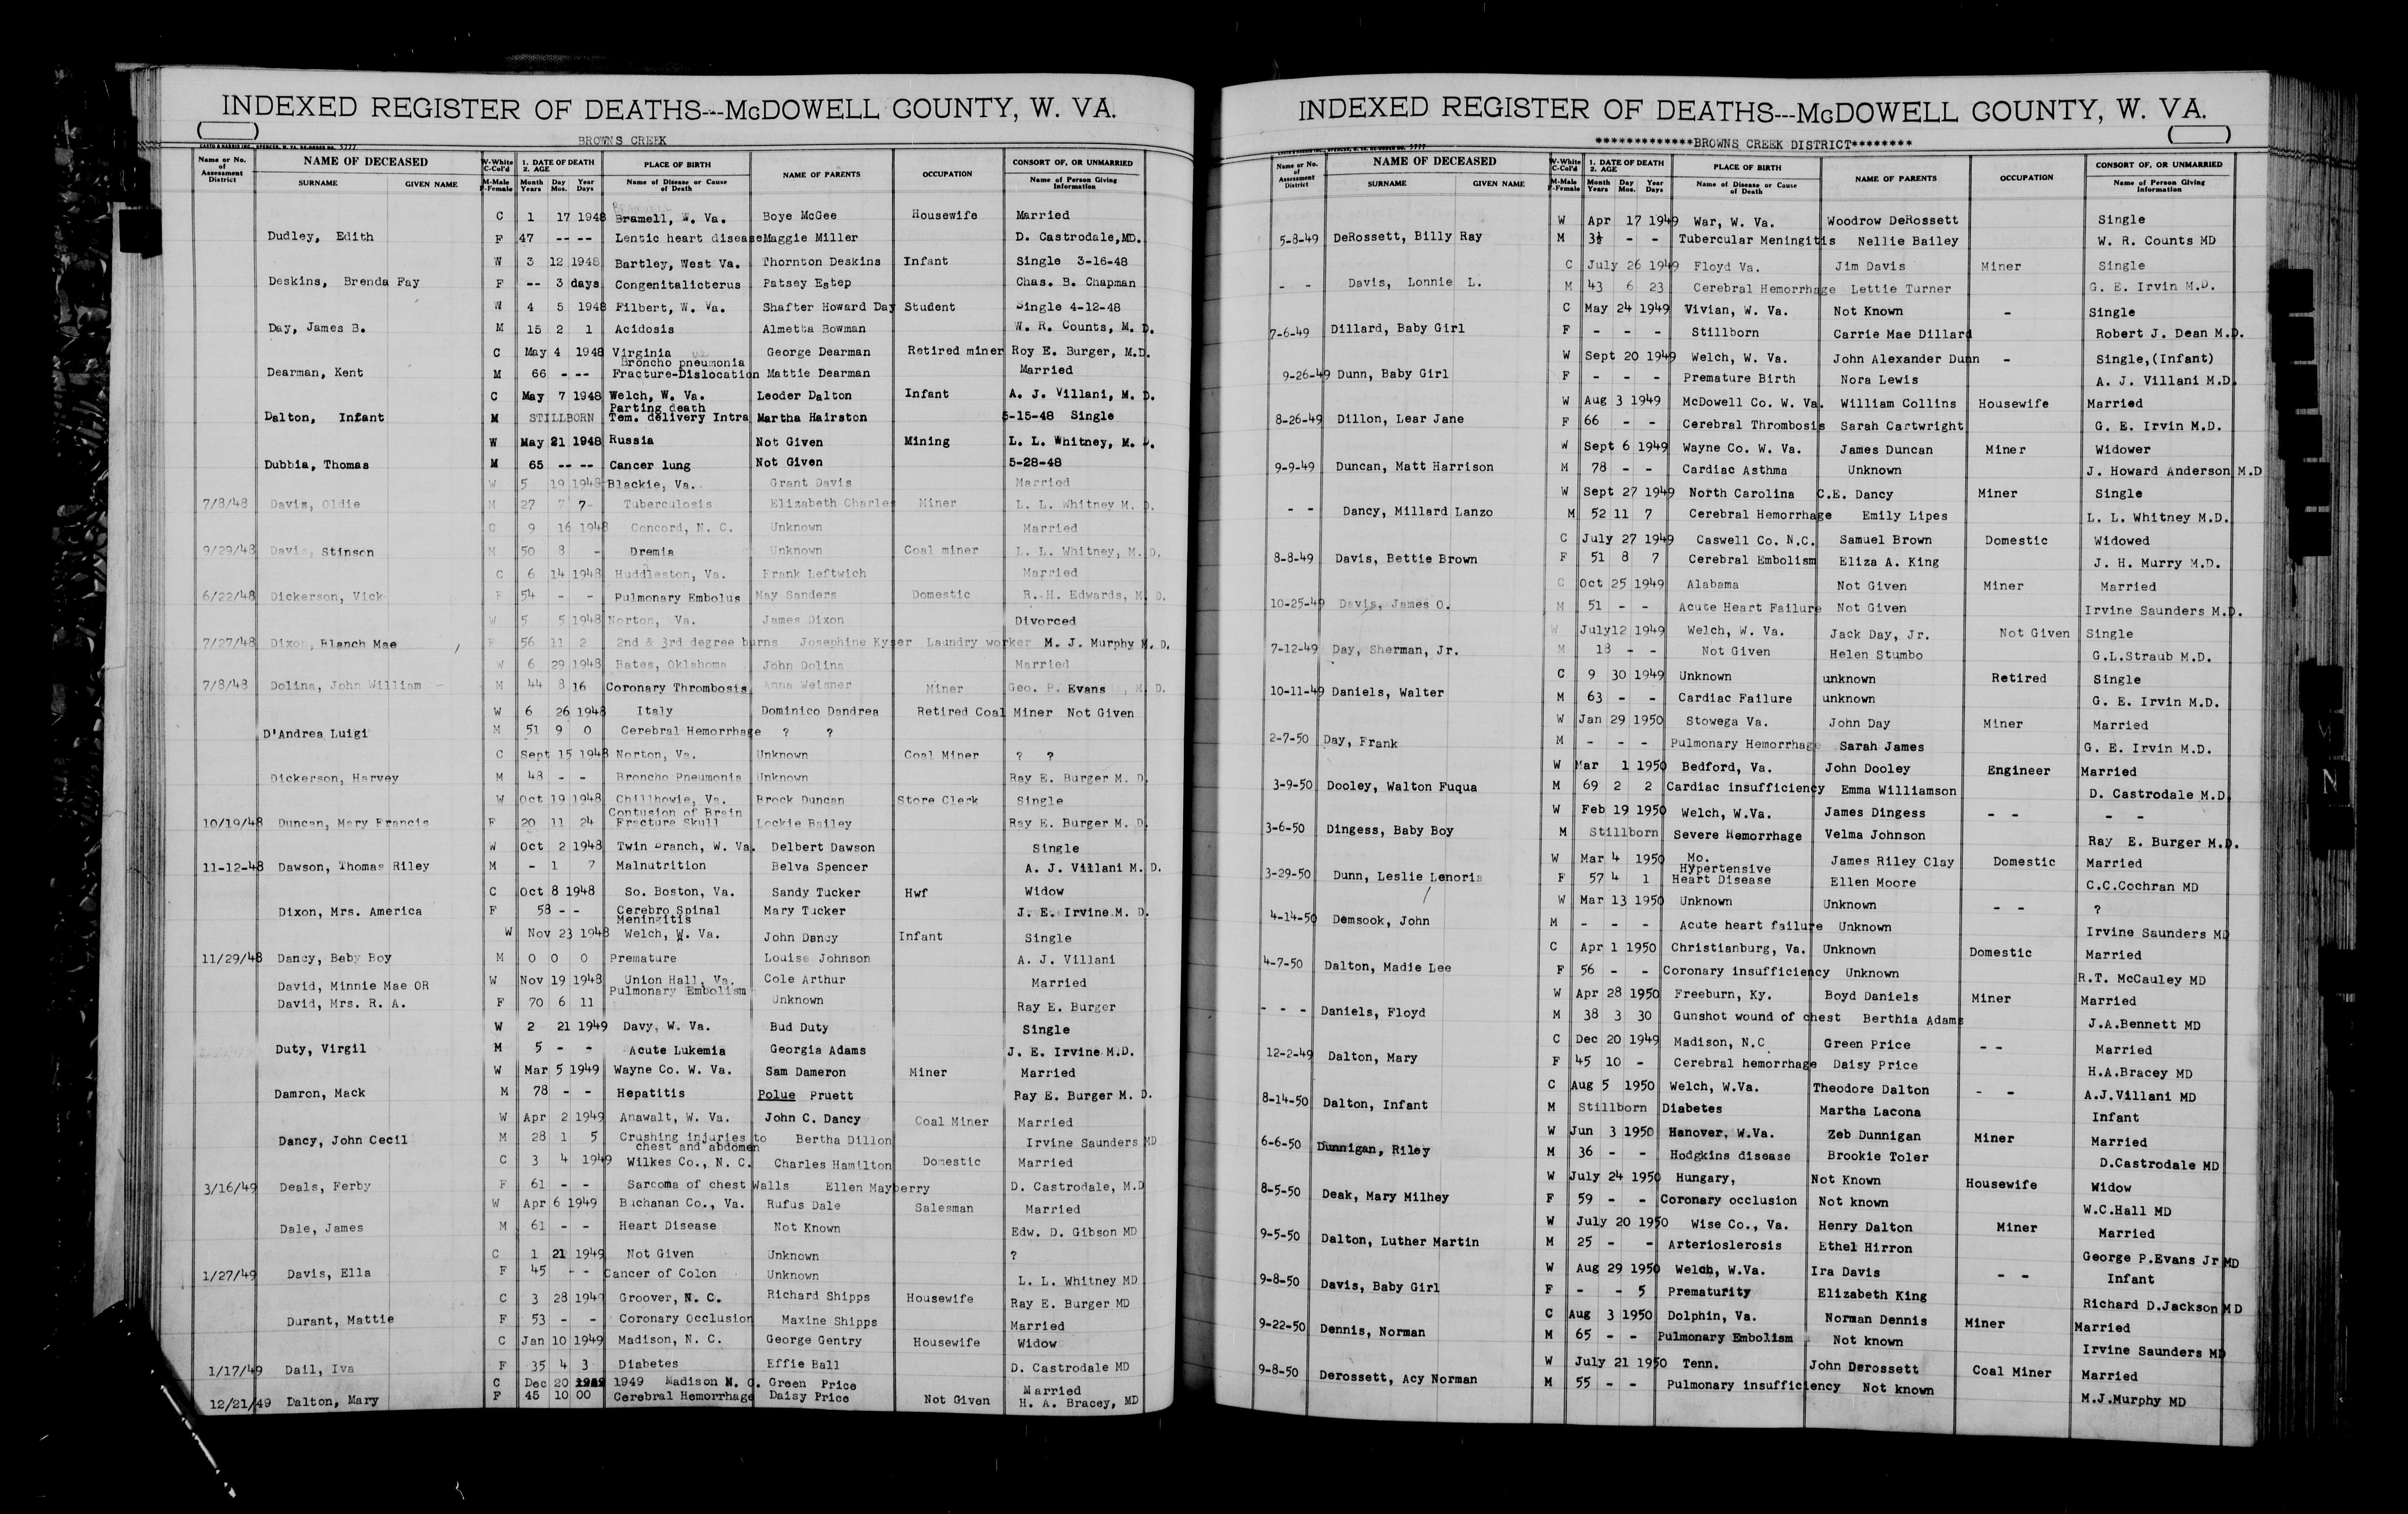 INDEXED REGISTER OF DEATHS---McDOWELL COUNTY, W. VA.
BROWNS CREEK
Name or No. of Assessment District
NAME OF DECEASED
SURNAME GIVEN NAME
W-White C-Col'd
M-Male F-Female
1. DATE OF DEATH
2. AGE
Month Day Year
Years Mos. Days
PLACE OF BIRTH
Name of Disease or Cause of Death
NAME OF PARENTS
OCCUPATION
CONSORT OF, OR UNMARRIED
Name of Person Giving Information
C 1 17 1948 Bramell, W. Va. Boye McGee Housewife Married
Dudley, Edith F 47 -- -- Lentic heart disease Maggie Miller D. Castrodale, MD.
W 3 12 1948 Bartley, West Va. Thornton Deskins Infant Single 3-16-48
Deskins, Brenda Fay F -- 3 days Congenitalicterus Patsey Estep Chas. B. Chapman
W 4 5 1948 Filbert, W. Va. Shafter Howard Day Student Single 4-12-48
Day, James B. M 15 2 1 Acidosis Almetta Bowman W. R. Counts, M. D.
C May 4 1948 Virginia George Dearman Retired miner Roy E. Burger, M.D.
Broncho pneumonia
Dearman, Kent M 66 - -- Fracture-Dislocation Mattie Dearman Married
C May 7 1948 Welch, W. Va. Leoder Dalton Infant A. J. Villani, M. D.
Parting death
Dalton, Infant M STILLBORN Tem. delivery Intra Martha Hairston 5-15-48 Single
W May 21 1948 Russia Not Given Mining L. L. Whitney, M. D.
Dubbia, Thomas M 65 -- -- Cancer lung Not Given 5-28-48
W 5 19 1948 Blackie, Va. Grant Davis Married
7/8/48 Davis, Oldie M 27 7 7- Tuberculosis Elizabeth Charles Miner L. L. Whitney M. D.
C 9 16 1948 Concord, N. C. Unknown Married
9/29/48 Davis, Stinson M 50 8 - Dremia Unknown Coal miner L. L. Whitney, M. D.
C 6 14 1948 Huddleston, Va. Frank Leftwich Married
6/22/48 Dickerson, Vick F 54 - - Pulmonary Embolus May Sanders Domestic R. H. Edwards, M. D.
W 5 5 1948 Norton, Va. James Dixon Divorced
7/27/48 Dixon, Blanch Mae F 56 11 2 2nd & 3rd degree burns Josephine Kyser Laundry worker M. J. Murphy M. D.
W 6 29 1948 Bates, Oklahoma John Dolina Married
7/8/48 Dolina, John William M 44 8 16 Coronary Thrombosis Anna Weisner Miner Geo. P. Evans, M. D.
W 6 26 1948 Italy Dominico Dandrea Retired Coal Miner Not Given
D'Andrea Luigi M 51 9 0 Cerebral Hemorrhage ? ?
C Sept 15 1948 Norton, Va. Unknown Coal Miner ? ?
Dickerson, Harvey M 48 - - Broncho Pneumonia Unknown Ray E. Burger M. D.
W Oct 19 1948 Chillhowie, Va. Brock Duncan Store Clerk Single
Contusion of Brain
10/19/48 Duncan, Mary Francis F 20 11 24 Fracture Skull Lockie Bailey Ray E. Burger M. D.
W Oct 2 1948 Twin Branch, W. Va. Delbert Dawson Single
11-12-48 Dawson, Thomas Riley M - 1 7 Malnutrition Belva Spencer A. J. Villani M. D.
C Oct 8 1948 So. Boston, Va. Sandy Tucker Hwf Widow
Dixon, Mrs. America F 58 - - Cerebro Spinal Mary Tucker J. E. Irvine M. D.
Meningitis
W Nov 23 1948 Welch, W. Va. John Dancy Infant Single
11/29/48 Dancy, Baby Boy M 0 0 0 Premature Louise Johnson A. J. Villani
David, Minnie Mae OR W Nov 19 1948 Union Hall, Va. Cole Arthur Married
Pulmonary Embolism
David, Mrs. R. A. F 70 6 11 Unknown Ray E. Burger
W 2 21 1949 Davy, W. Va. Bud Duty Single
Duty, Virgil M 5 - - Acute Lukemia Georgia Adams J. E. Irvine M.D.
W Mar 5 1949 Wayne Co. W. Va. Sam Dameron Miner Married
Damron, Mack M 78 - - Hepatitis Polue Pruett Ray E. Burger M. D.
W Apr 2 1949 Anawalt, W. Va. John C. Dancy Coal Miner Married
Dancy, John Cecil M 28 1 5 Crushing injuries to Bertha Dillon Irvine Saunders MD
chest and abdomen
C 3 4 1949 Wilkes Co., N. C. Charles Hamilton Domestic Married
3/16/49 Deals, Ferby F 61 - - Sarcoma of chest Walls Ellen Mayberry D. Castrodale, M.D
W Apr 6 1949 Buchanan Co., Va. Rufus Dale Salesman Married
Dale, James M 61 - - Heart Disease Not Known Edw. D. Gibson MD
C 1 21 1949 Not Given Unknown ?
1/27/49 Davis, Ella F 45 - - Cancer of Colon Unknown L. L. Whitney MD
C 3 28 1949 Groover, N. C. Richard Shipps Housewife Ray E. Burger MD
Durant, Mattie F 53 - - Coronary Occlusion Maxine Shipps Married
C Jan 10 1949 Madison, N. C. George Gentry Housewife Widow
1/17/49 Dail, Iva F 35 4 3 Diabetes Effie Ball D. Castrodale MD
C Dec 20 1949 1949 Madison N. C. Green Price Married
12/21/49 Dalton, Mary F 45 10 00 Cerebral Hemorrhage Daisy Price Not Given H. A. Bracey, MD
INDEXED REGISTER OF DEATHS---McDOWELL COUNTY, W. VA.
*************BROWNS CREEK DISTRICT********
Name or No. of Assessment District
NAME OF DECEASED
SURNAME GIVEN NAME
W-White C-Col'd
M-Male F-Female
1. DATE OF DEATH
2. AGE
Month Day Year
Years Mos. Days
PLACE OF BIRTH
Name of Disease or Cause of Death
NAME OF PARENTS
OCCUPATION
CONSORT OF, OR UNMARRIED
Name of Person Giving Information
W Apr 17 1949 War, W. Va. Woodrow DeRossett Single
5-8-49 DeRossett, Billy Ray M 3½ - - Tubercular Meningitis Nellie Bailey W. R. Counts MD
C July 26 1949 Floyd Va. Jim Davis Miner Single
- - Davis, Lonnie L. M 43 6 23 Cerebral Hemorrhage Lettie Turner G. E. Irvin M.D.
C May 24 1949 Vivian, W. Va. Not Known - Single
7-6-49 Dillard, Baby Girl F - - - Stillborn Carrie Mae Dillard Robert J. Dean M.D.
W Sept 20 1949 Welch, W. Va. John Alexander Dunn - Single,(Infant)
9-26-49 Dunn, Baby Girl F - - - Premature Birth Nora Lewis A. J. Villani M.D
W Aug 3 1949 McDowell Co. W. Va. William Collins Housewife Married
8-26-49 Dillon, Lear Jane F 66 - - Cerebral Thrombosis Sarah Cartwright G. E. Irvin M.D.
W Sept 6 1949 Wayne Co. W. Va. James Duncan Miner Widower
9-9-49 Duncan, Matt Harrison M 78 - - Cardiac Asthma Unknown J. Howard Anderson M.D
W Sept 27 1949 North Carolina C.E. Dancy Miner Single
- - Dancy, Millard Lanzo M 52 11 7 Cerebral Hemorrhage Emily Lipes L. L. Whitney M.D.
C July 27 1949 Caswell Co. N.C. Samuel Brown Domestic Widowed
8-8-49 Davis, Bettie Brown F 51 8 7 Cerebral Embolism Eliza A. King J. H. Murry M.D.
C Oct 25 1949 Alabama Not Given Miner Married
10-25-49 Davis, James O. M 51 - - Acute Heart Failure Not Given Irvine Saunders M.D.
W July12 1949 Welch, W. Va. Jack Day, Jr. Not Given Single
7-12-49 Day, Sherman, Jr. M 18 - - Not Given Helen Stumbo G.L.Straub M.D.
C 9 30 1949 Unknown unknown Retired Single
10-11-49 Daniels, Walter M 63 - - Cardiac Failure unknown G. E. Irvin M.D.
W Jan 29 1950 Stowega Va. John Day Miner Married
2-7-50 Day, Frank M - - - Pulmonary Hemorrhage Sarah James G. E. Irvin M.D.
W Mar 1 1950 Bedford, Va. John Dooley Engineer Married
3-9-50 Dooley, Walton Fuqua M 69 2 2 Cardiac insufficiency Emma Williamson D. Castrodale M.D
W Feb 19 1950 Welch, W.Va. James Dingess - - - -
3-6-50 Dingess, Baby Boy M Stillborn Severe Hemorrhage Velma Johnson Ray E. Burger M.D.
W Mar 4 1950 Mo. James Riley Clay Domestic Married
Hypertensive
3-29-50 Dunn, Leslie Lenoria F 57 4 1 Heart Disease Ellen Moore C.C.Cochran MD
W Mar 13 1950 Unknown Unknown - - ?
4-14-50 Demsook, John M - - - Acute heart failure Unknown Irvine Saunders MD
C Apr 1 1950 Christianburg, Va. Unknown Domestic Married
4-7-50 Dalton, Madie Lee F 56 - - Coronary insufficiency Unknown R.T. McCauley MD
W Apr 28 1950 Freeburn, Ky. Boyd Daniels Miner Married
- - - Daniels, Floyd M 38 3 30 Gunshot wound of chest Berthia Adams J.A.Bennett MD
C Dec 20 1949 Madison, N.C Green Price - - Married
12-2-49 Dalton, Mary F 45 10 - Cerebral hemorrhage Daisy Price H.A.Bracey MD
C Aug 5 1950 Welch, W.Va. Theodore Dalton - - A.J.Villani MD
8-14-50 Dalton, Infant M Stillborn Diabetes Martha Lacona Infant
W Jun 3 1950 Hanover, W.Va. Zeb Dunnigan Miner Married
6-6-50 Dunnigan, Riley M 36 - - Hodgkins disease Brookie Toler D.Castrodale MD
W July 24 1950 Hungary, Not Known Housewife Widow
8-5-50 Deak, Mary Milhey F 59 - - Coronary occlusion Not known W.C.Hall MD
W July 20 1950 Wise Co., Va. Henry Dalton Miner Married
9-5-50 Dalton, Luther Martin M 25 - - Arterioslerosis Ethel Hirron George P.Evans Jr MD
W Aug 29 1950 Welch, W.Va. Ira Davis - - Infant
9-8-50 Davis, Baby Girl F - - 5 Prematurity Elizabeth King Richard D.Jackson MD
C Aug 3 1950 Dolphin, Va. Norman Dennis Miner Married
9-22-50 Dennis, Norman M 65 - - Pulmonary Embolism Not known Irvine Saunders MD
W July 21 1950 Tenn. John Derossett Coal Miner Married
9-8-50 Derossett, Acy Norman M 55 - - Pulmonary insufficiency Not known M.J.Murphy MD